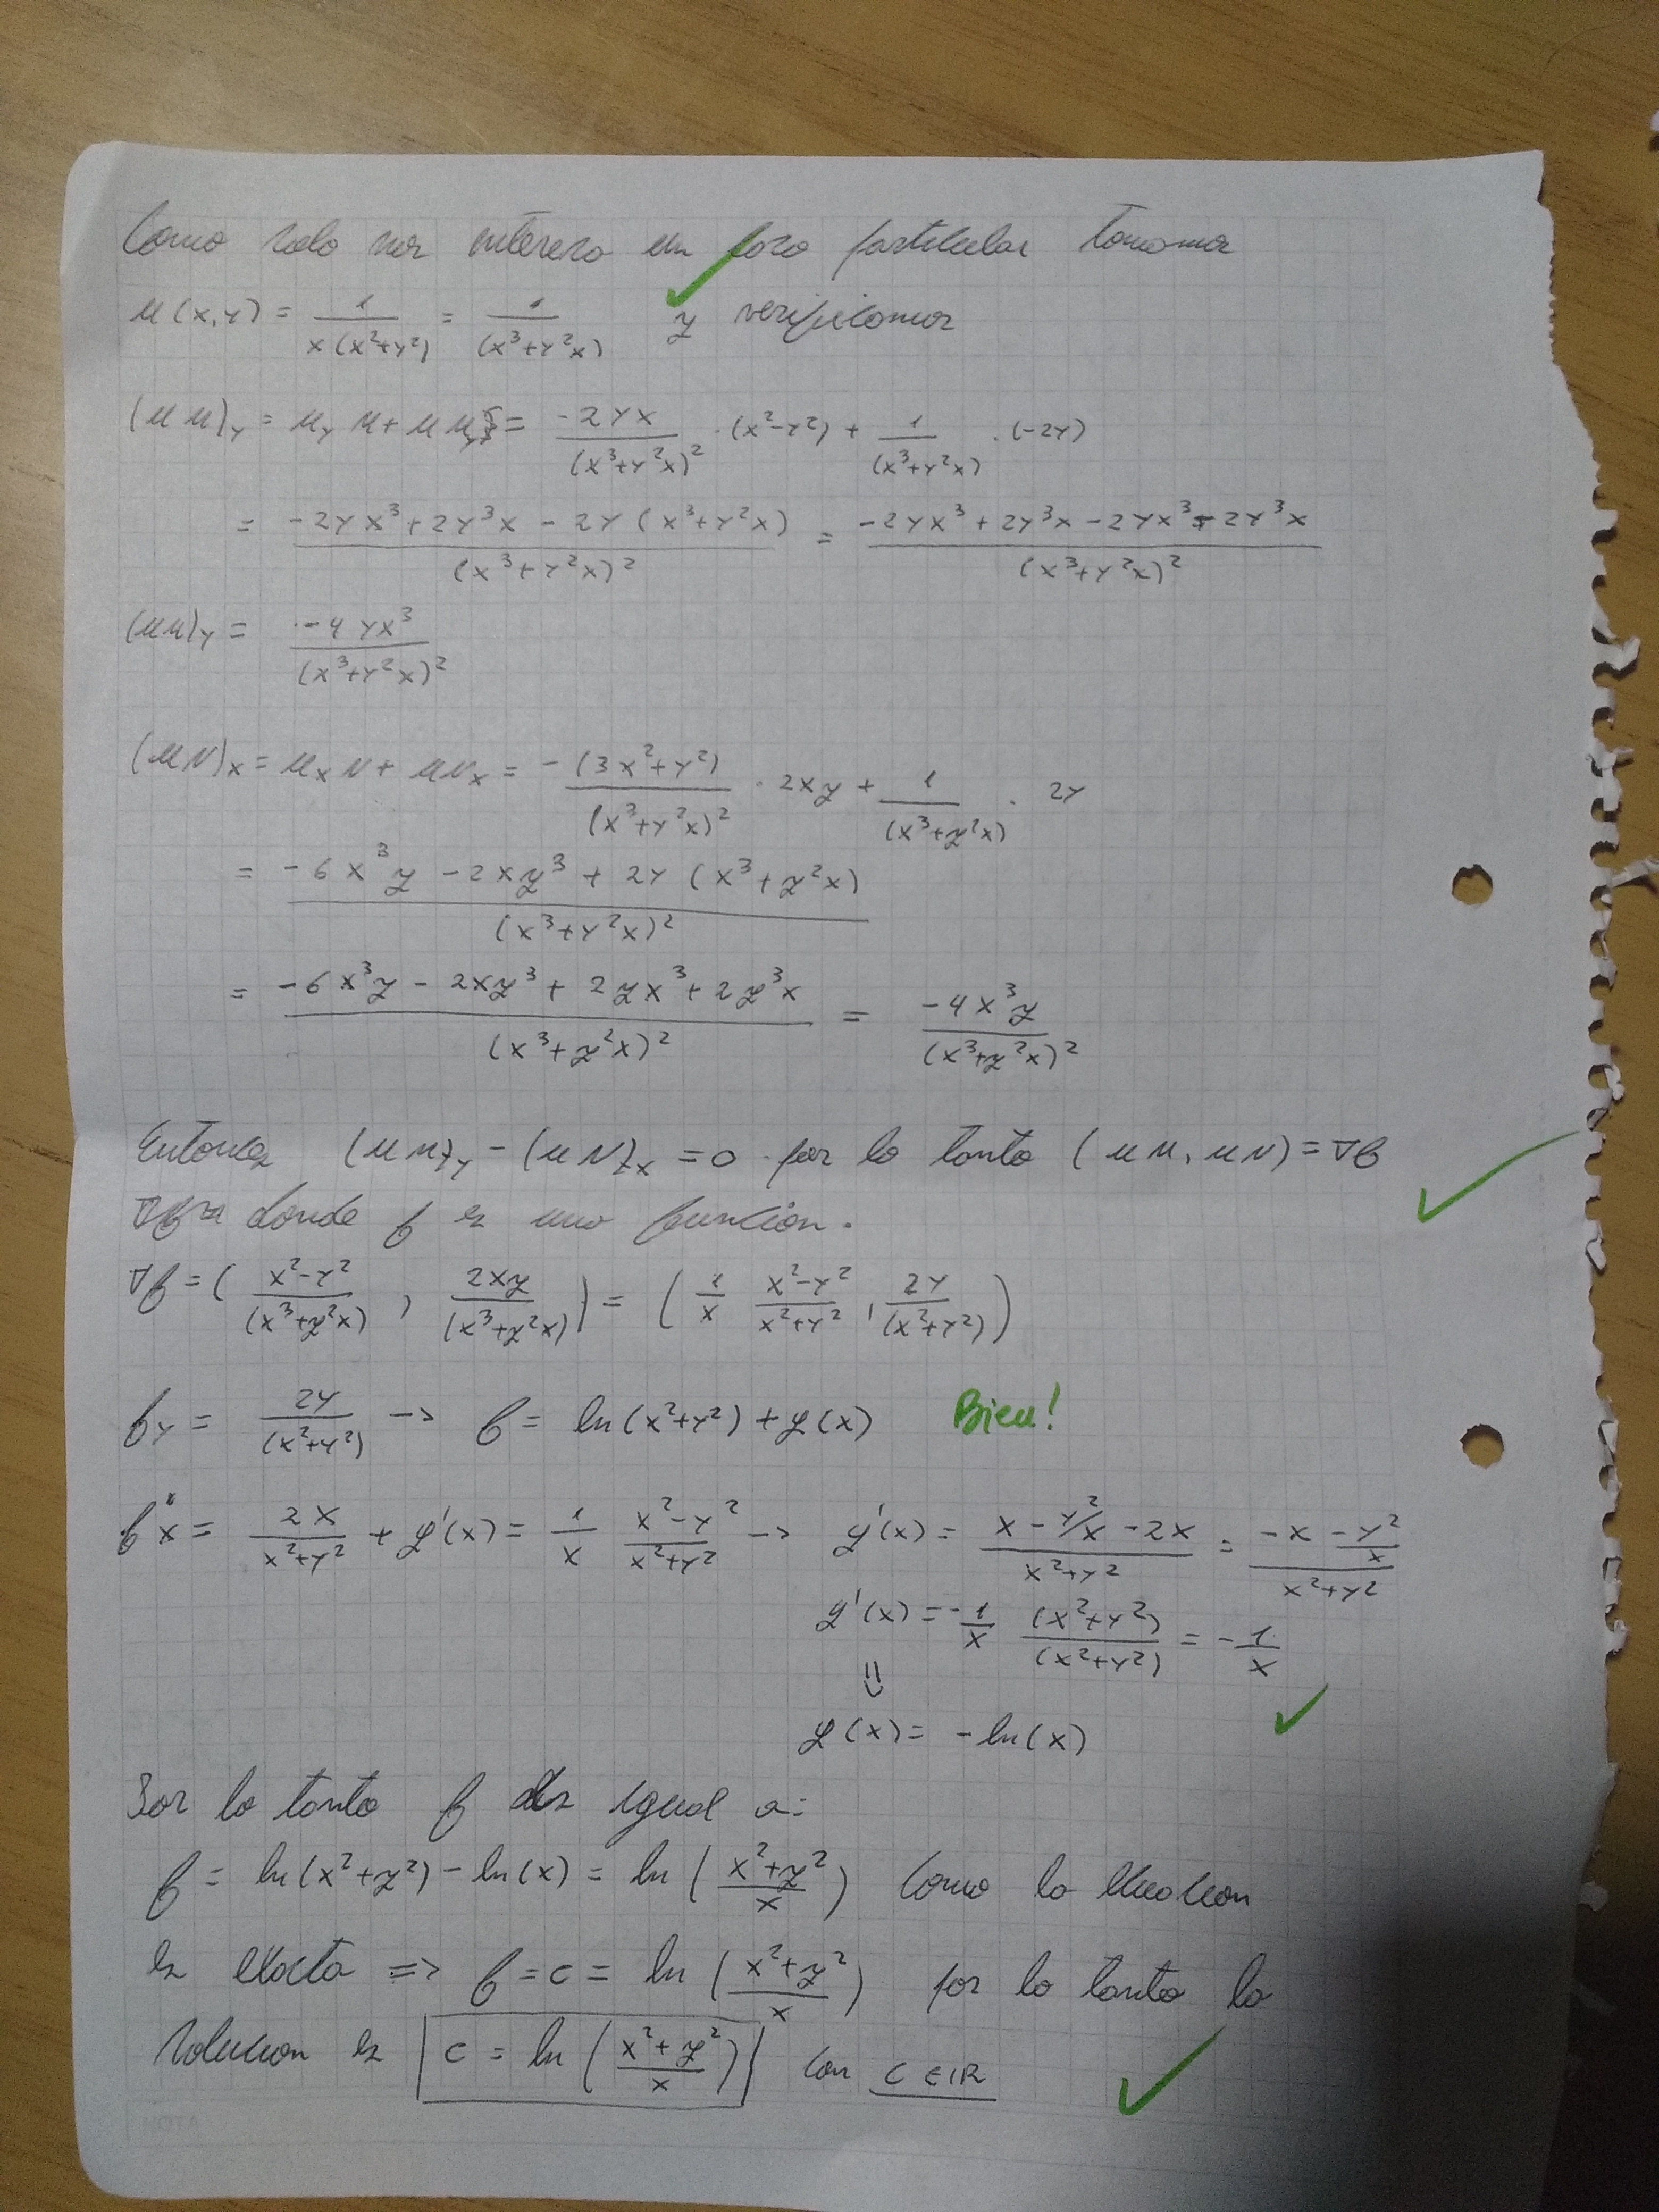 Como solo nos interesa un caso particular tomamos
μ(x,y) = 1/(x(x²+y²)) = 1/(x³+y²x) y verificamos
(μM)y = μy M + μ My = -2yx/(x³+y²x)² · (x²-y²) + 1/(x³+y²x) · (-2y)
= (-2yx³+2y³x - 2y(x³+y²x))/(x³+y²x)² = (-2yx³+2y³x-2yx³-2y³x)/(x³+y²x)²
(μM)y = -4yx³/(x³+y²x)²
(μN)x = μx N + μNx = -(3x²+y²)/(x³+y²x)² · 2xy + 1/(x³+y²x) · 2y
= (-6x³y - 2xy³ + 2y(x³+y²x))/(x³+y²x)²
= (-6x³y - 2xy³ + 2yx³ + 2y³x)/(x³+y²x)² = -4x³y/(x³+y²x)²
Entonces (μM)y - (μN)x = 0 por lo tanto (μM, μN) = ∇f
donde f es una función.
∇f = ((x²-y²)/(x³+y²x), 2xy/(x³+y²x)) = (1/x (x²-y²)/(x²+y²), 2y/(x²+y²))
fy = 2y/(x²+y²) -> f = ln(x²+y²) + φ(x) Bien!
fx = 2x/(x²+y²) + φ'(x) = 1/x (x²-y²)/(x²+y²) -> φ'(x) = (x - y²/x - 2x)/(x²+y²) = (-x - y²/x)/(x²+y²)
φ'(x) = -1/x (x²+y²)/(x²+y²) = -1/x
⇓
φ(x) = -ln(x)
Por lo tanto f es igual a:
f = ln(x²+y²) - ln(x) = ln((x²+y²)/x) Como la ecuacion
es exacta => f = c = ln((x²+y²)/x) por lo tanto la
solucion es c = ln((x²+y²)/x) con c ∈ ℝ